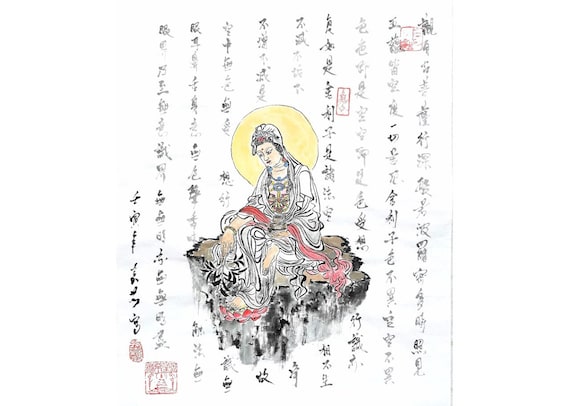 觀自在菩薩行深般若波羅蜜多時照見
五蘊皆空度一切苦厄舍利子色不異空空不異
色色即是空空即是色受想行識亦
復如是舍利子是諸法空相不生
不滅不垢不淨
不增不減是故
空中無色無受想行識無
眼耳鼻舌身意無色聲香味觸法無
眼界乃至無意識界無無明亦無無明盡
壬寅年